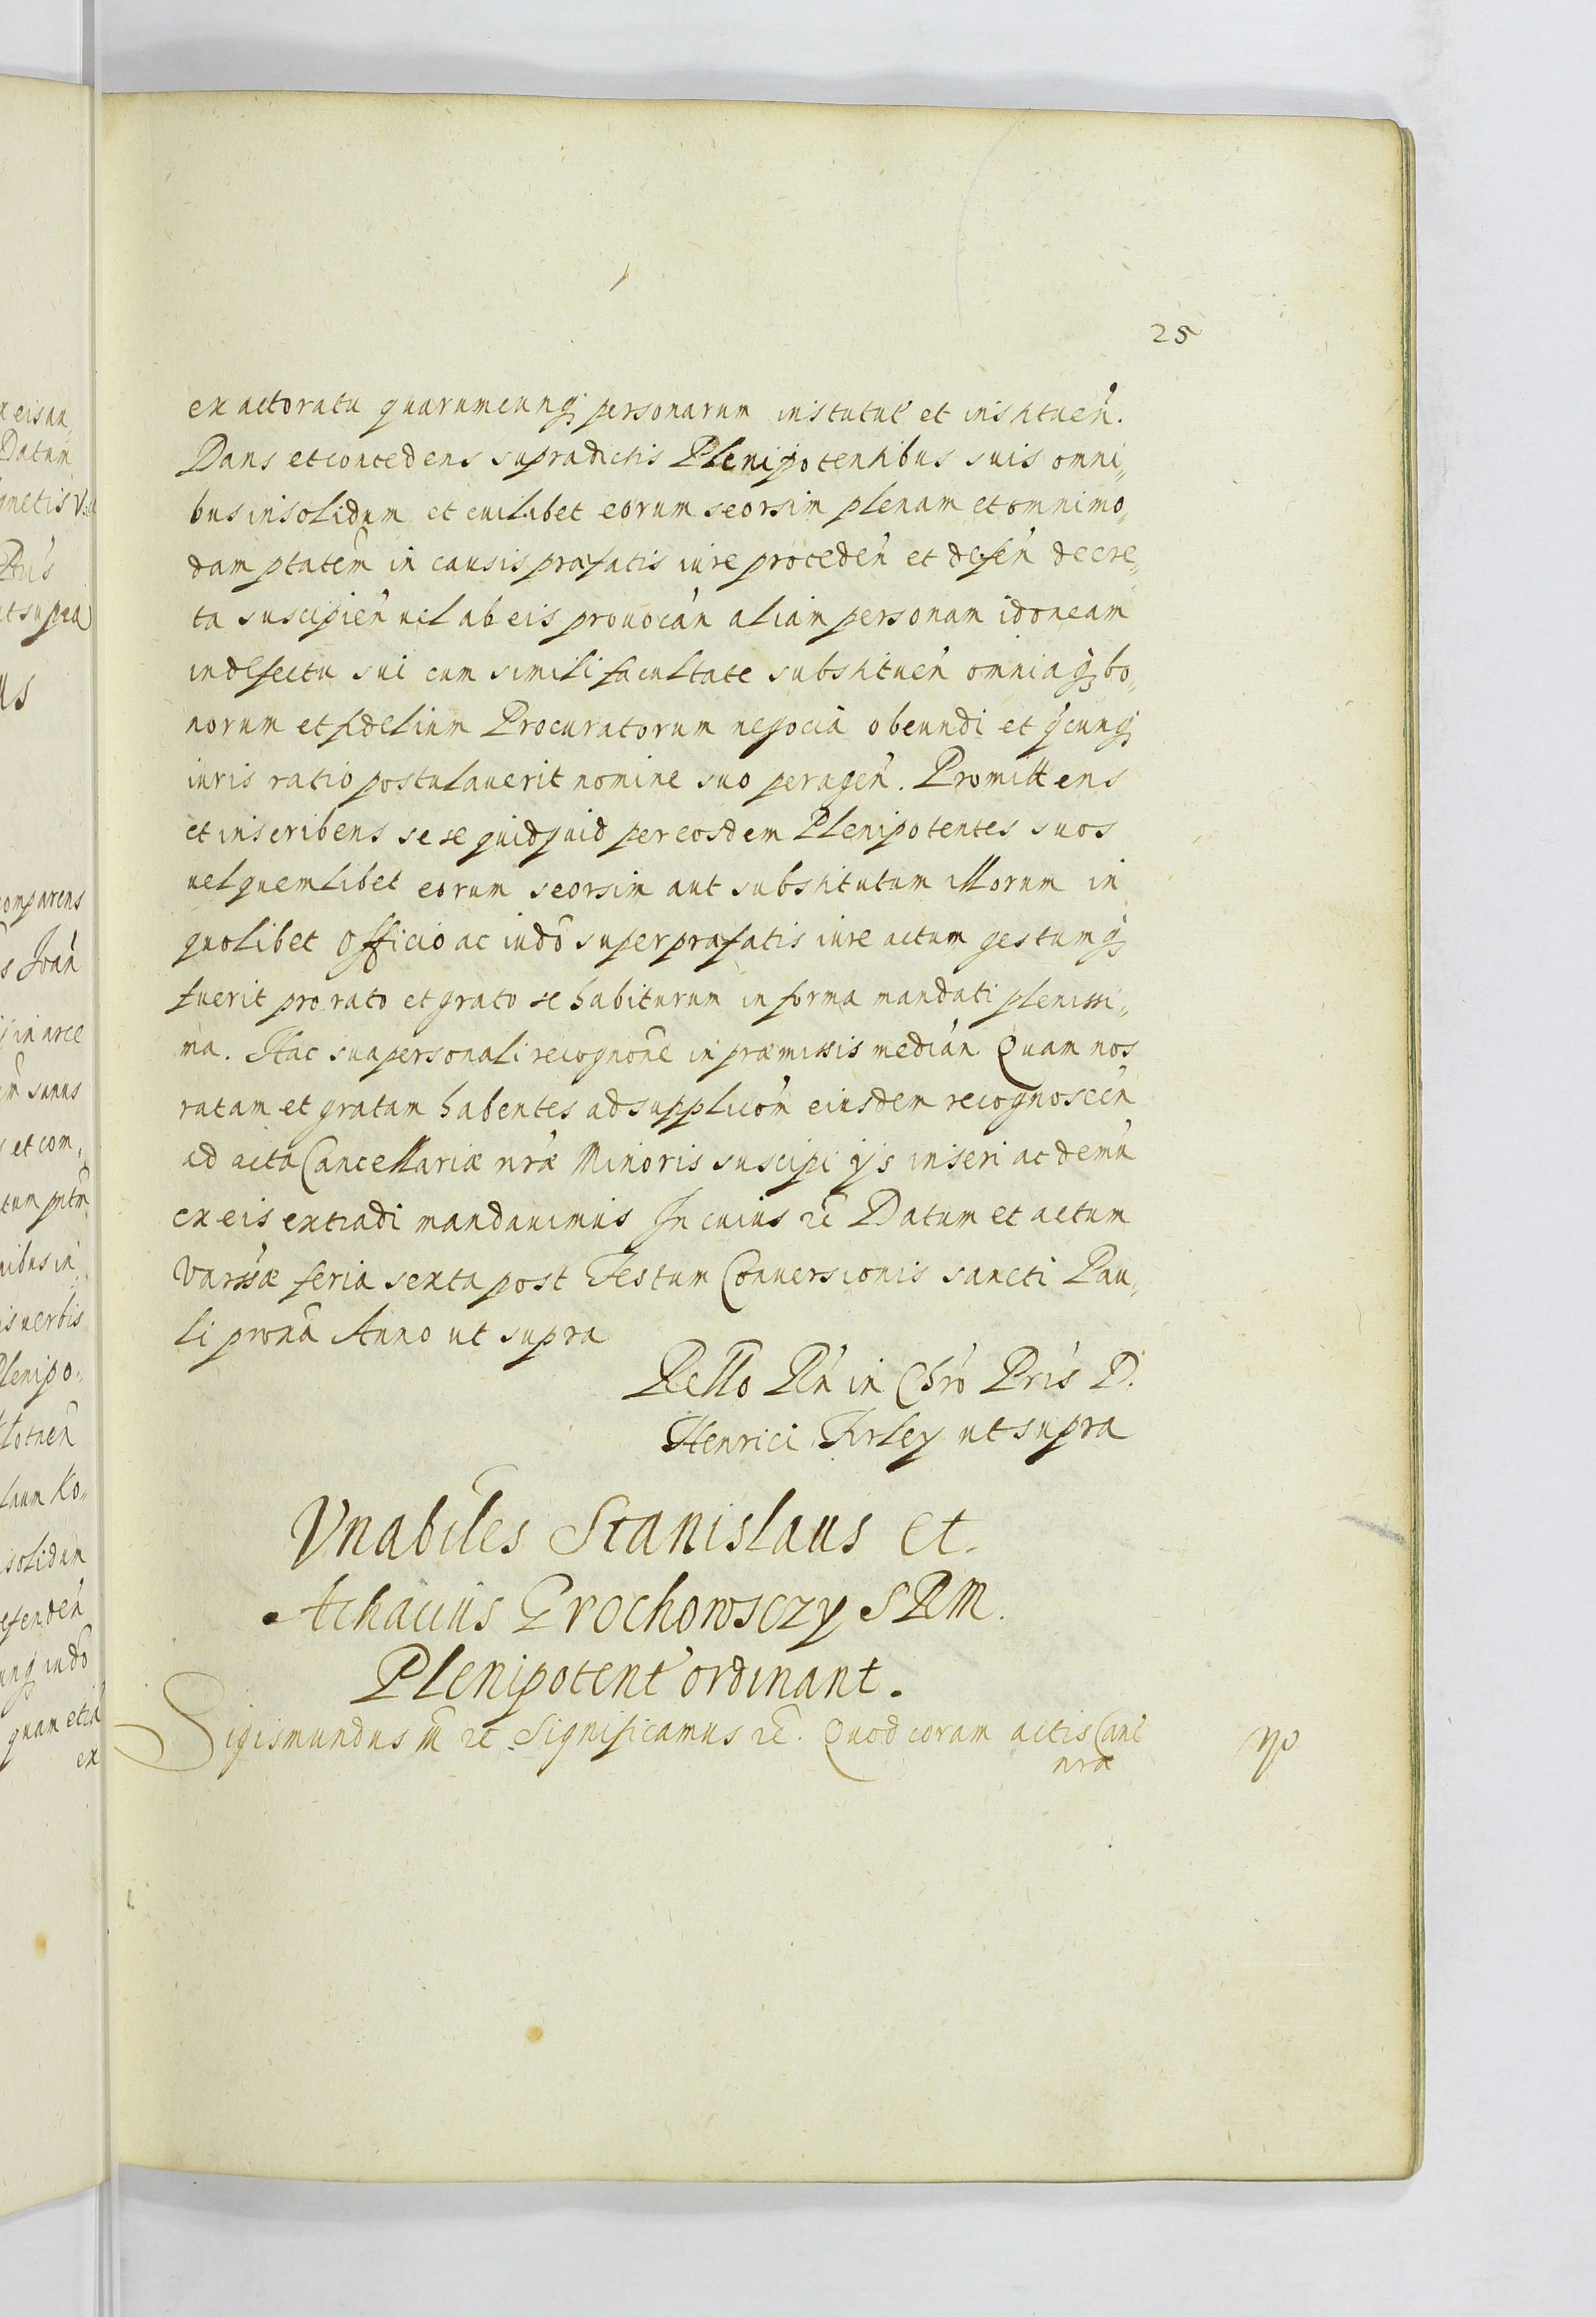 25
ex actoratu quarumcunq; personarum institut' et instituen'.
Dans et concedens supradictis Plenipotentibus suis omni„
bus insolidum et cuilibet eorum seorsim plenam et omnimo„
dam ptatem̃ in causis præfatis iure proceden' et defen' decre„
ta suscipien' uel ab eis prouocan' aliam personam idoneam
in defectu sui cum simili facultate substituen' omniaq; bo„
norum et fidelium Procuratorum negocia obeundi et q̀cunq;
iuris ratio postulauerit nomine suo peragen'. Promittens
et inscribens sese quidquid per eosdem Plenipotentes suos
uel quemlibet eorum seorsim aut substitutum illorum in
quolibet Officio ac iudõ super præfatis iure actum gestumq;
fuerit pro rato et grato se habiturum in forma mandati plenissi„
ma. Hac sua personali recognoñe in præmissis median' Quam nos
ratam et gratam habentes ad supplicoñ eiusdem recognoscen'
ad acta Cancellariæ nr̃æ Minoris suscipi ijs inseri ac demũ
ex eis extradi mandauimus In cuius rẽ Datum et actum
Varssæ feria sexta post Festum Conuersionis sancti Pau„
li proxã Anno ut supra
Rello Rn' in Chr̃o Pris D.
Henrici Firley ut supra
Vnabiles Stanislaus et
Achacius Grochowsczy SRM.
Plenipotent' ordinant.
Sigismundus m̃ rc Significamus rẽ. Quod coram actis Canc
nræ